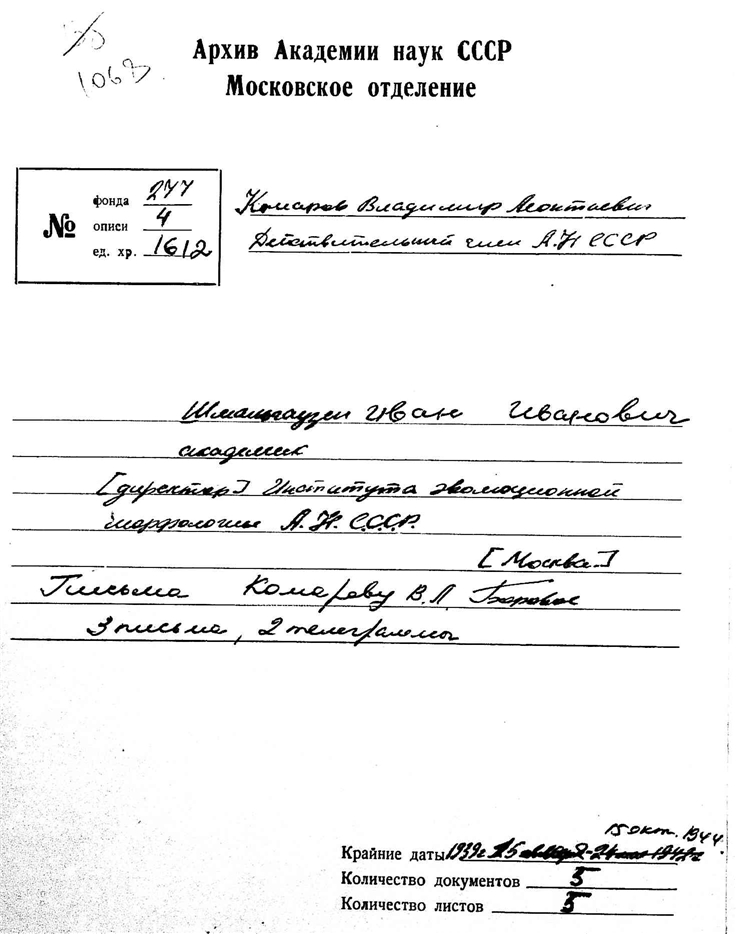 1063
Архив Академии наук СССР
Московское отделение
№
фонда 277
описи 4
ед. хр. 1612
Комаров Владимир Леонтьевич
Действительный член А.Н СССР
Шмальгаузен Иван Иванович
академик
[директор] Института эволюционной
морфологии А.Н. С.С.С.Р.
[Москва]
Письма Комарову В.Л Боровое
3 письма, 2 телеграммы
15 окт. 1944.
Крайние даты 1939г
Количество документов 5
Количество листов 5